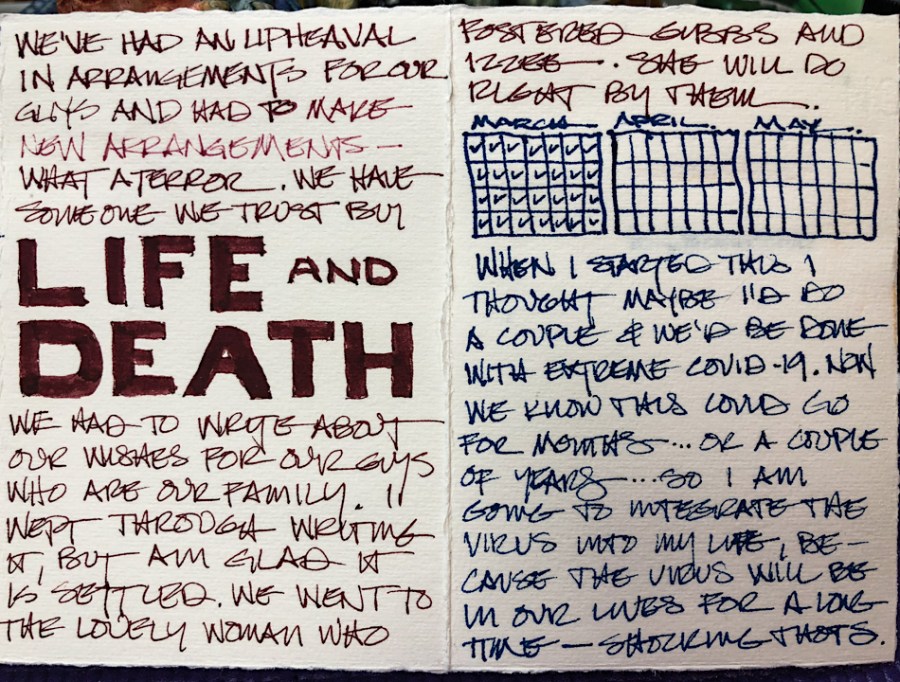 WE'VE HAD AN UPHEAVAL
IN ARRANGEMENTS FOR OUR
GUYS AND HAD TO MAKE
NEW ARRANGEMENTS —
WHAT A TERROR. WE HAVE
SOMEONE WE TRUST BUT
LIFE AND
DEATH
WE HAD TO WRITE ABOUT
OUR WISHES FOR OUR GUYS
WHO ARE OUR FAMILY. I
WEPT THROUGH WRITING
IT, BUT AM GLAD IT
IS SETTLED. WE WENT TO
THE LOVELY WOMAN WHO
FOSTERED GIBBS AND
IZZEE.. SHE WILL DO
RIGHT BY THEM..
MARCH APRIL.. MAY...
WHEN I STARTED THIS I
THOUGHT MAYBE I'D DO
A COUPLE & WE'D BE DONE
WITH EXTREME COVID-19. NOW
WE KNOW THIS COULD GO
FOR MONTHS... OR A COUPLE
OF YEARS... SO I AM
GOING TO INTEGRATE THE
VIRUS INTO MY LIFE, BE-
CAUSE THE VIRUS WILL BE
IN OUR LIVES FOR A LONG
TIME — SHOCKING THOTS.